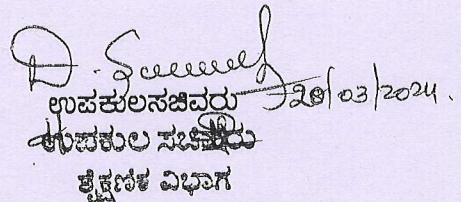 28/03/2024.
ಉಪಕುಲಸಚಿವರು
ಉಪಕುಲ ಸಚಿವರು
ಶೈಕ್ಷಣಿಕ ವಿಭಾಗ